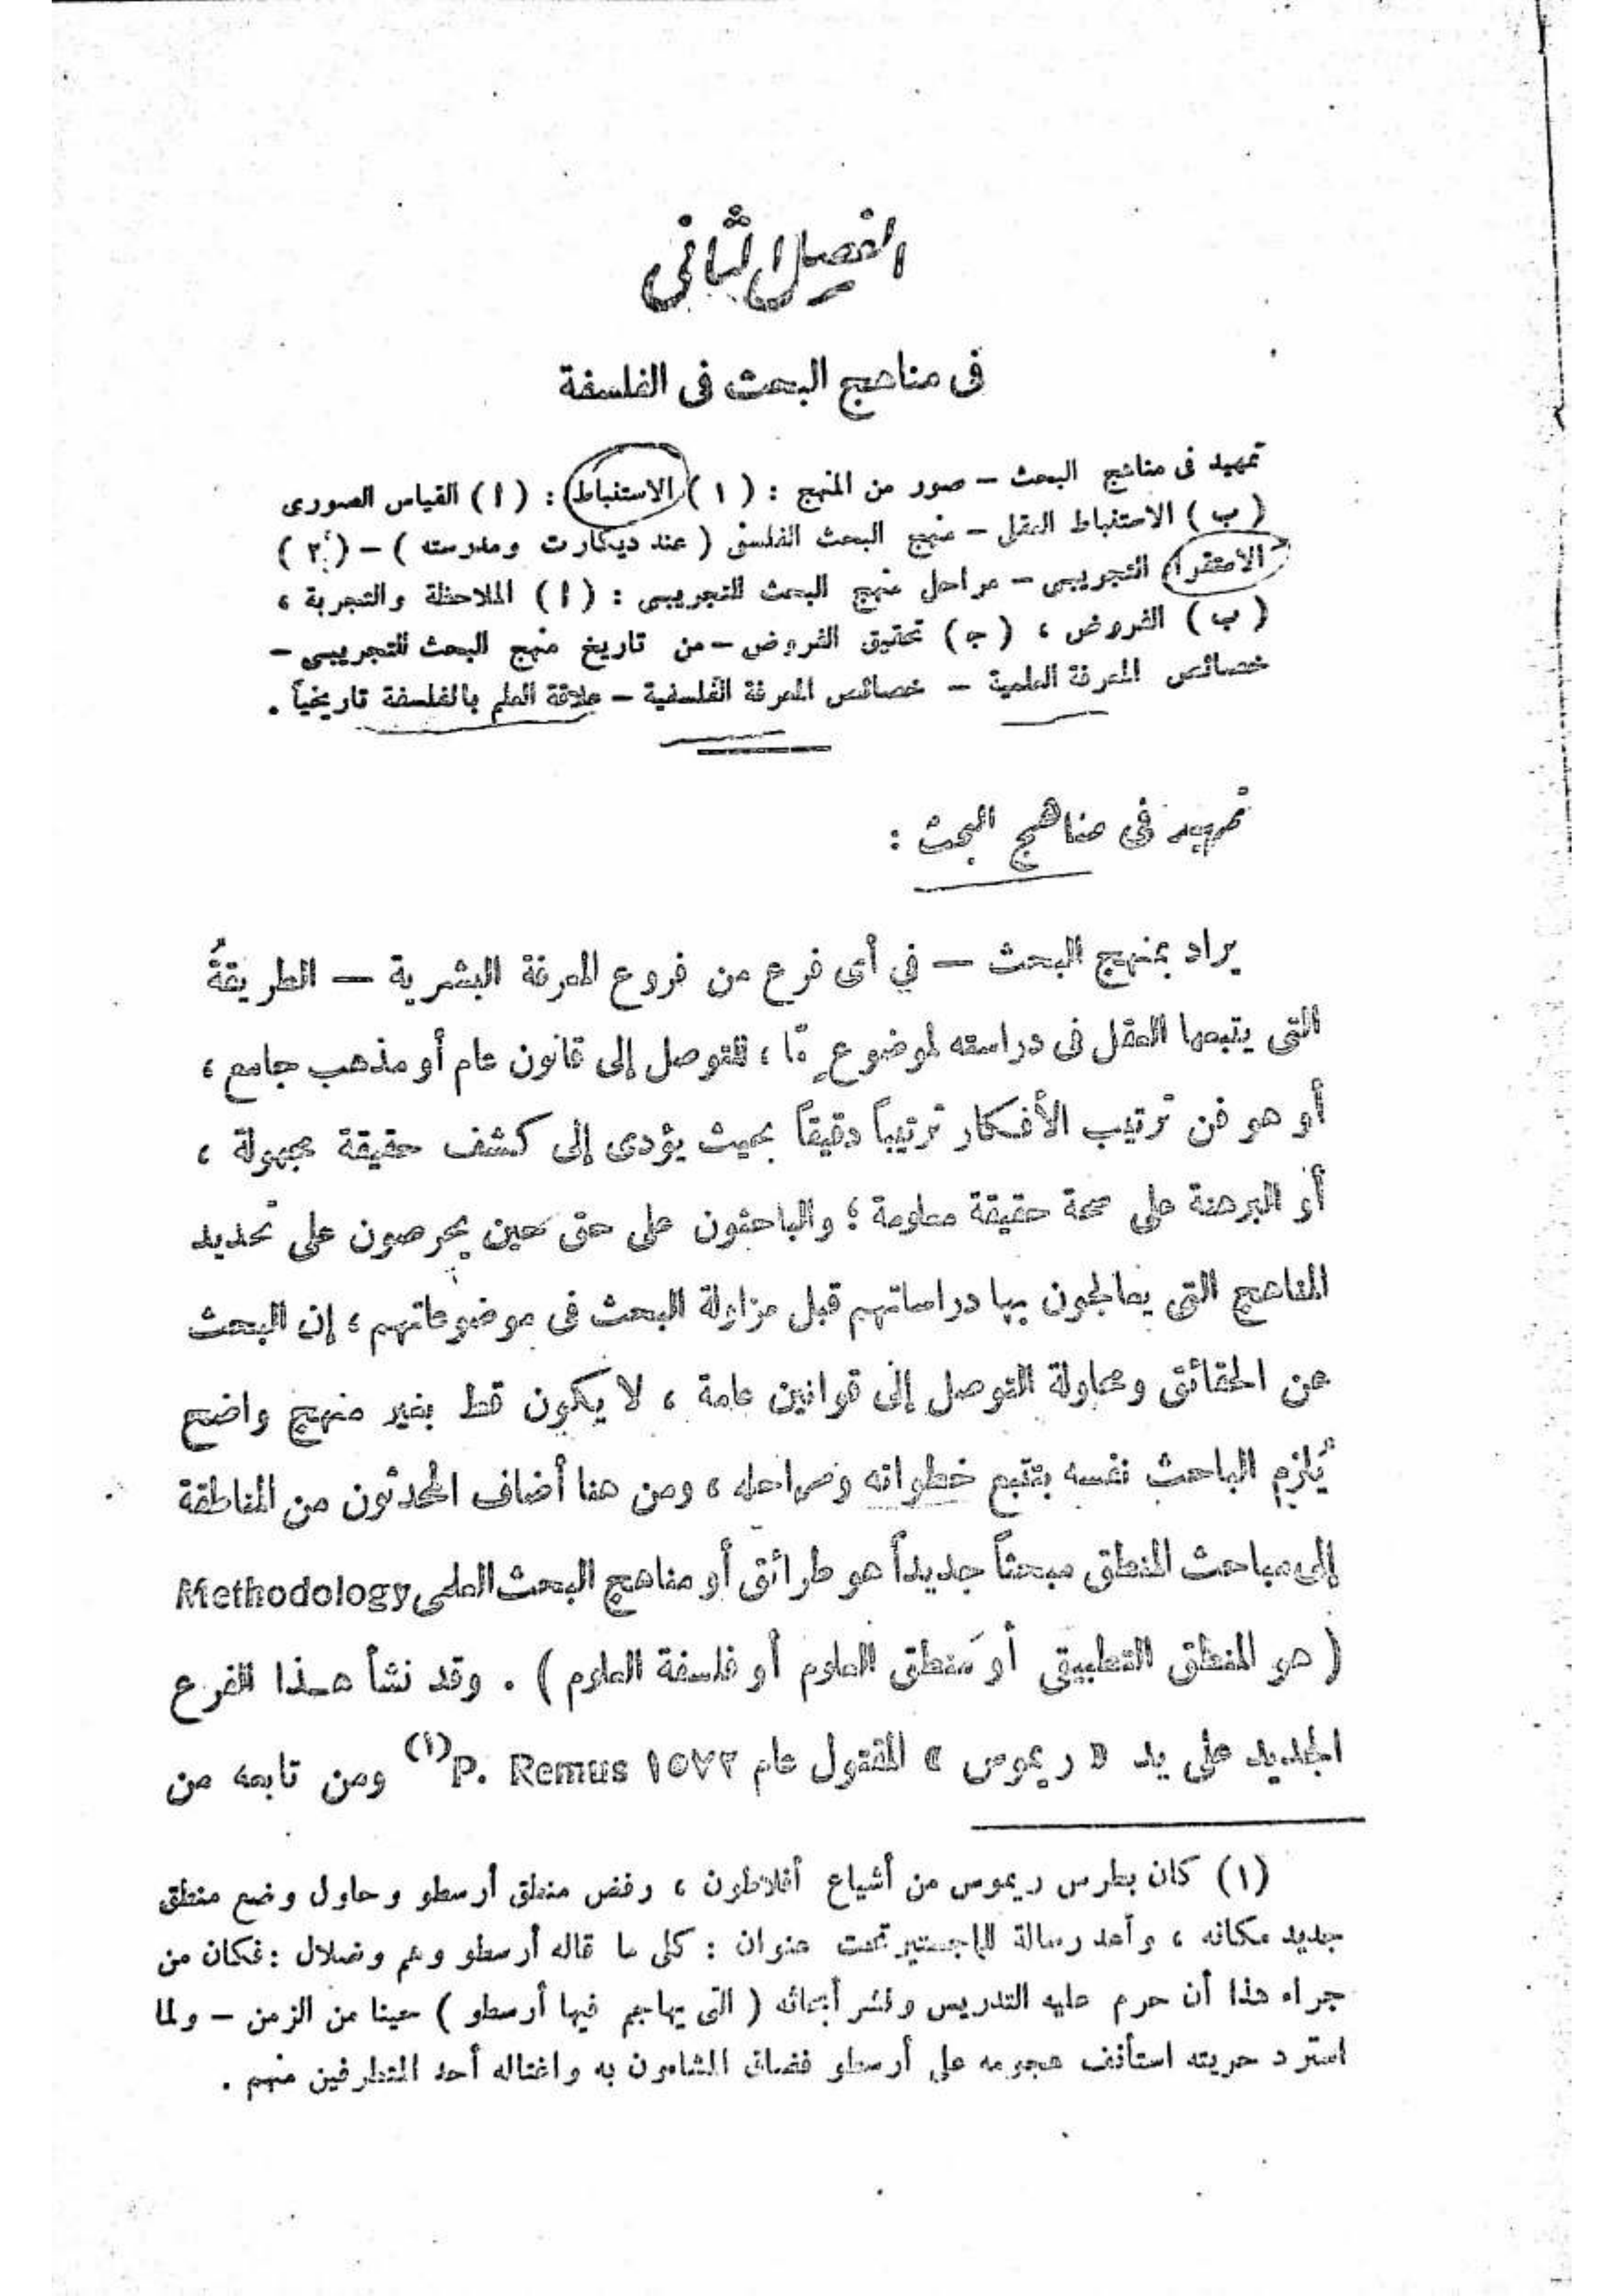 الفصل الثاني
في مناهج البحث في الفلسفة
تمهيد في مناهج البحث – صور من المنهج : ( ١ ) الاستنباط : ( ا ) القياس الصورى
( ب ) الاستنباط العقلى – منهج البحث الفلسفى ( عند ديكارت ومدرسته ) – ( ٢ )
الاستقراء التجريبى – مراحل منهج البحث التجريبى : ( ا ) الملاحظة والتجربة ،
( ب ) الفروض ، ( ج ) تحقيق الفروض – من تاريخ منهج البحث التجريبى –
خصائص المعرفة العلمية – خصائص المعرفة الفلسفية – علاقة العلم بالفلسفة تاريخياً .
تمهيد في مناهج البحث :
يراد بمنهج البحث – في أى فرع من فروع المعرفة البشرية – الطريقةُ
التى يتبعها العقل فى دراسته لموضوعٍ مّا ، للتوصل إلى قانون عام أو مذهب جامع ،
أو هو فن ترتيب الأفكار ترتيباً دقيقاً بحيث يؤدى إلى كشف حقيقة مجهولة ،
أو البرهنة على صحة حقيقة معلومة ؛ والباحثون على حق حين يحرصون على تحديد
المناهج التى يعالجون بها دراساتهم قبل مزاولة البحث فى موضوعاتهم ، إن البحث
عن الحقائق ومحاولة التوصل إلى قوانين عامة ، لا يكون قط بغير منهج واضح
يُلزم الباحث نفسه بتتبع خطواته ومراحله ، ومن هنا أضاف المحدثون من المناطقة
إلى مباحث المنطق مبحثاً جديداً هو طرائق أو مناهج البحث العلمى Methodology
( هو المنطق التطبيقى أو مَنطق العلوم أو فلسفة العلوم ) . وقد نشأ هذا الفرع
الجديد على يد « ريموس » المقتول عام ١٥٧٢ P. Remus (١) ومن تابعه من
(١) كان بطرس ريموس من أشياع أفلاطون ، رفض منطق أرسطو وحاول وضع منطق
جديد مكانه ، وأعد رسالة للماجستير تحت عنوان : كل ما قاله أرسطو وهم وضلال : فكان من
جراء هذا أن حرم عليه التدريس ونشر أبحاثه ( التى يهاجم فيها أرسطو ) حينا من الزمن – ولما
استرد حريته استأنف هجومه على أرسطو فضاق المشاءون به واغتاله أحد المتطرفين منهم .